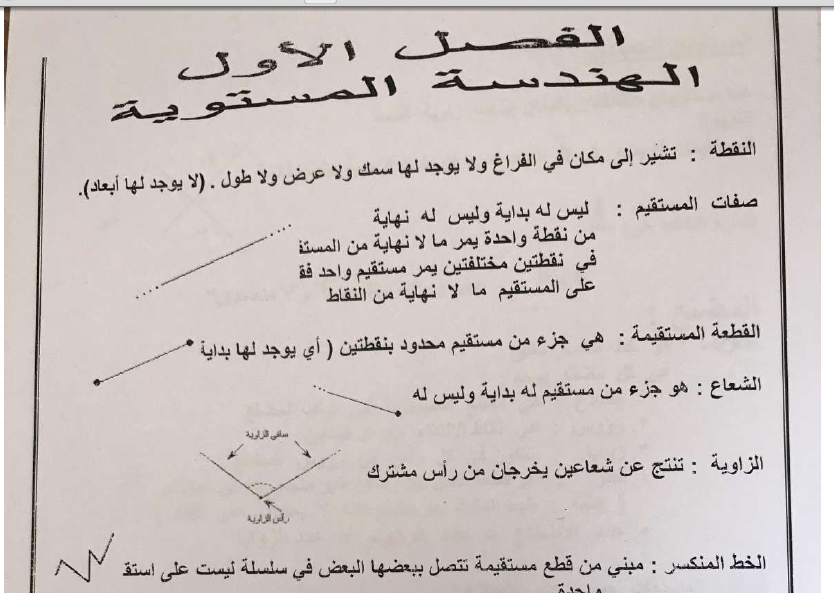 الفصل الأول
الهندسة المستوية
النقطة : تشير إلى مكان في الفراغ ولا يوجد لها سمك ولا عرض ولا طول . (لا يوجد لها أبعاد).
صفات المستقيم : ليس له بداية وليس له نهاية
من نقطة واحدة يمر ما لا نهاية من المستق
في نقطتين مختلفتين يمر مستقيم واحد فق
على المستقيم ما لا نهاية من النقاط
القطعة المستقيمة : هي جزء من مستقيم محدود بنقطتين ( أي يوجد لها بداية
الشعاع : هو جزء من مستقيم له بداية وليس له
ساقي الزاوية
الزاوية : تنتج عن شعاعين يخرجان من رأس مشترك
رأس الزاوية
الخط المنكسر : مبني من قطع مستقيمة تتصل ببعضها البعض في سلسلة ليست على استق
واحدة